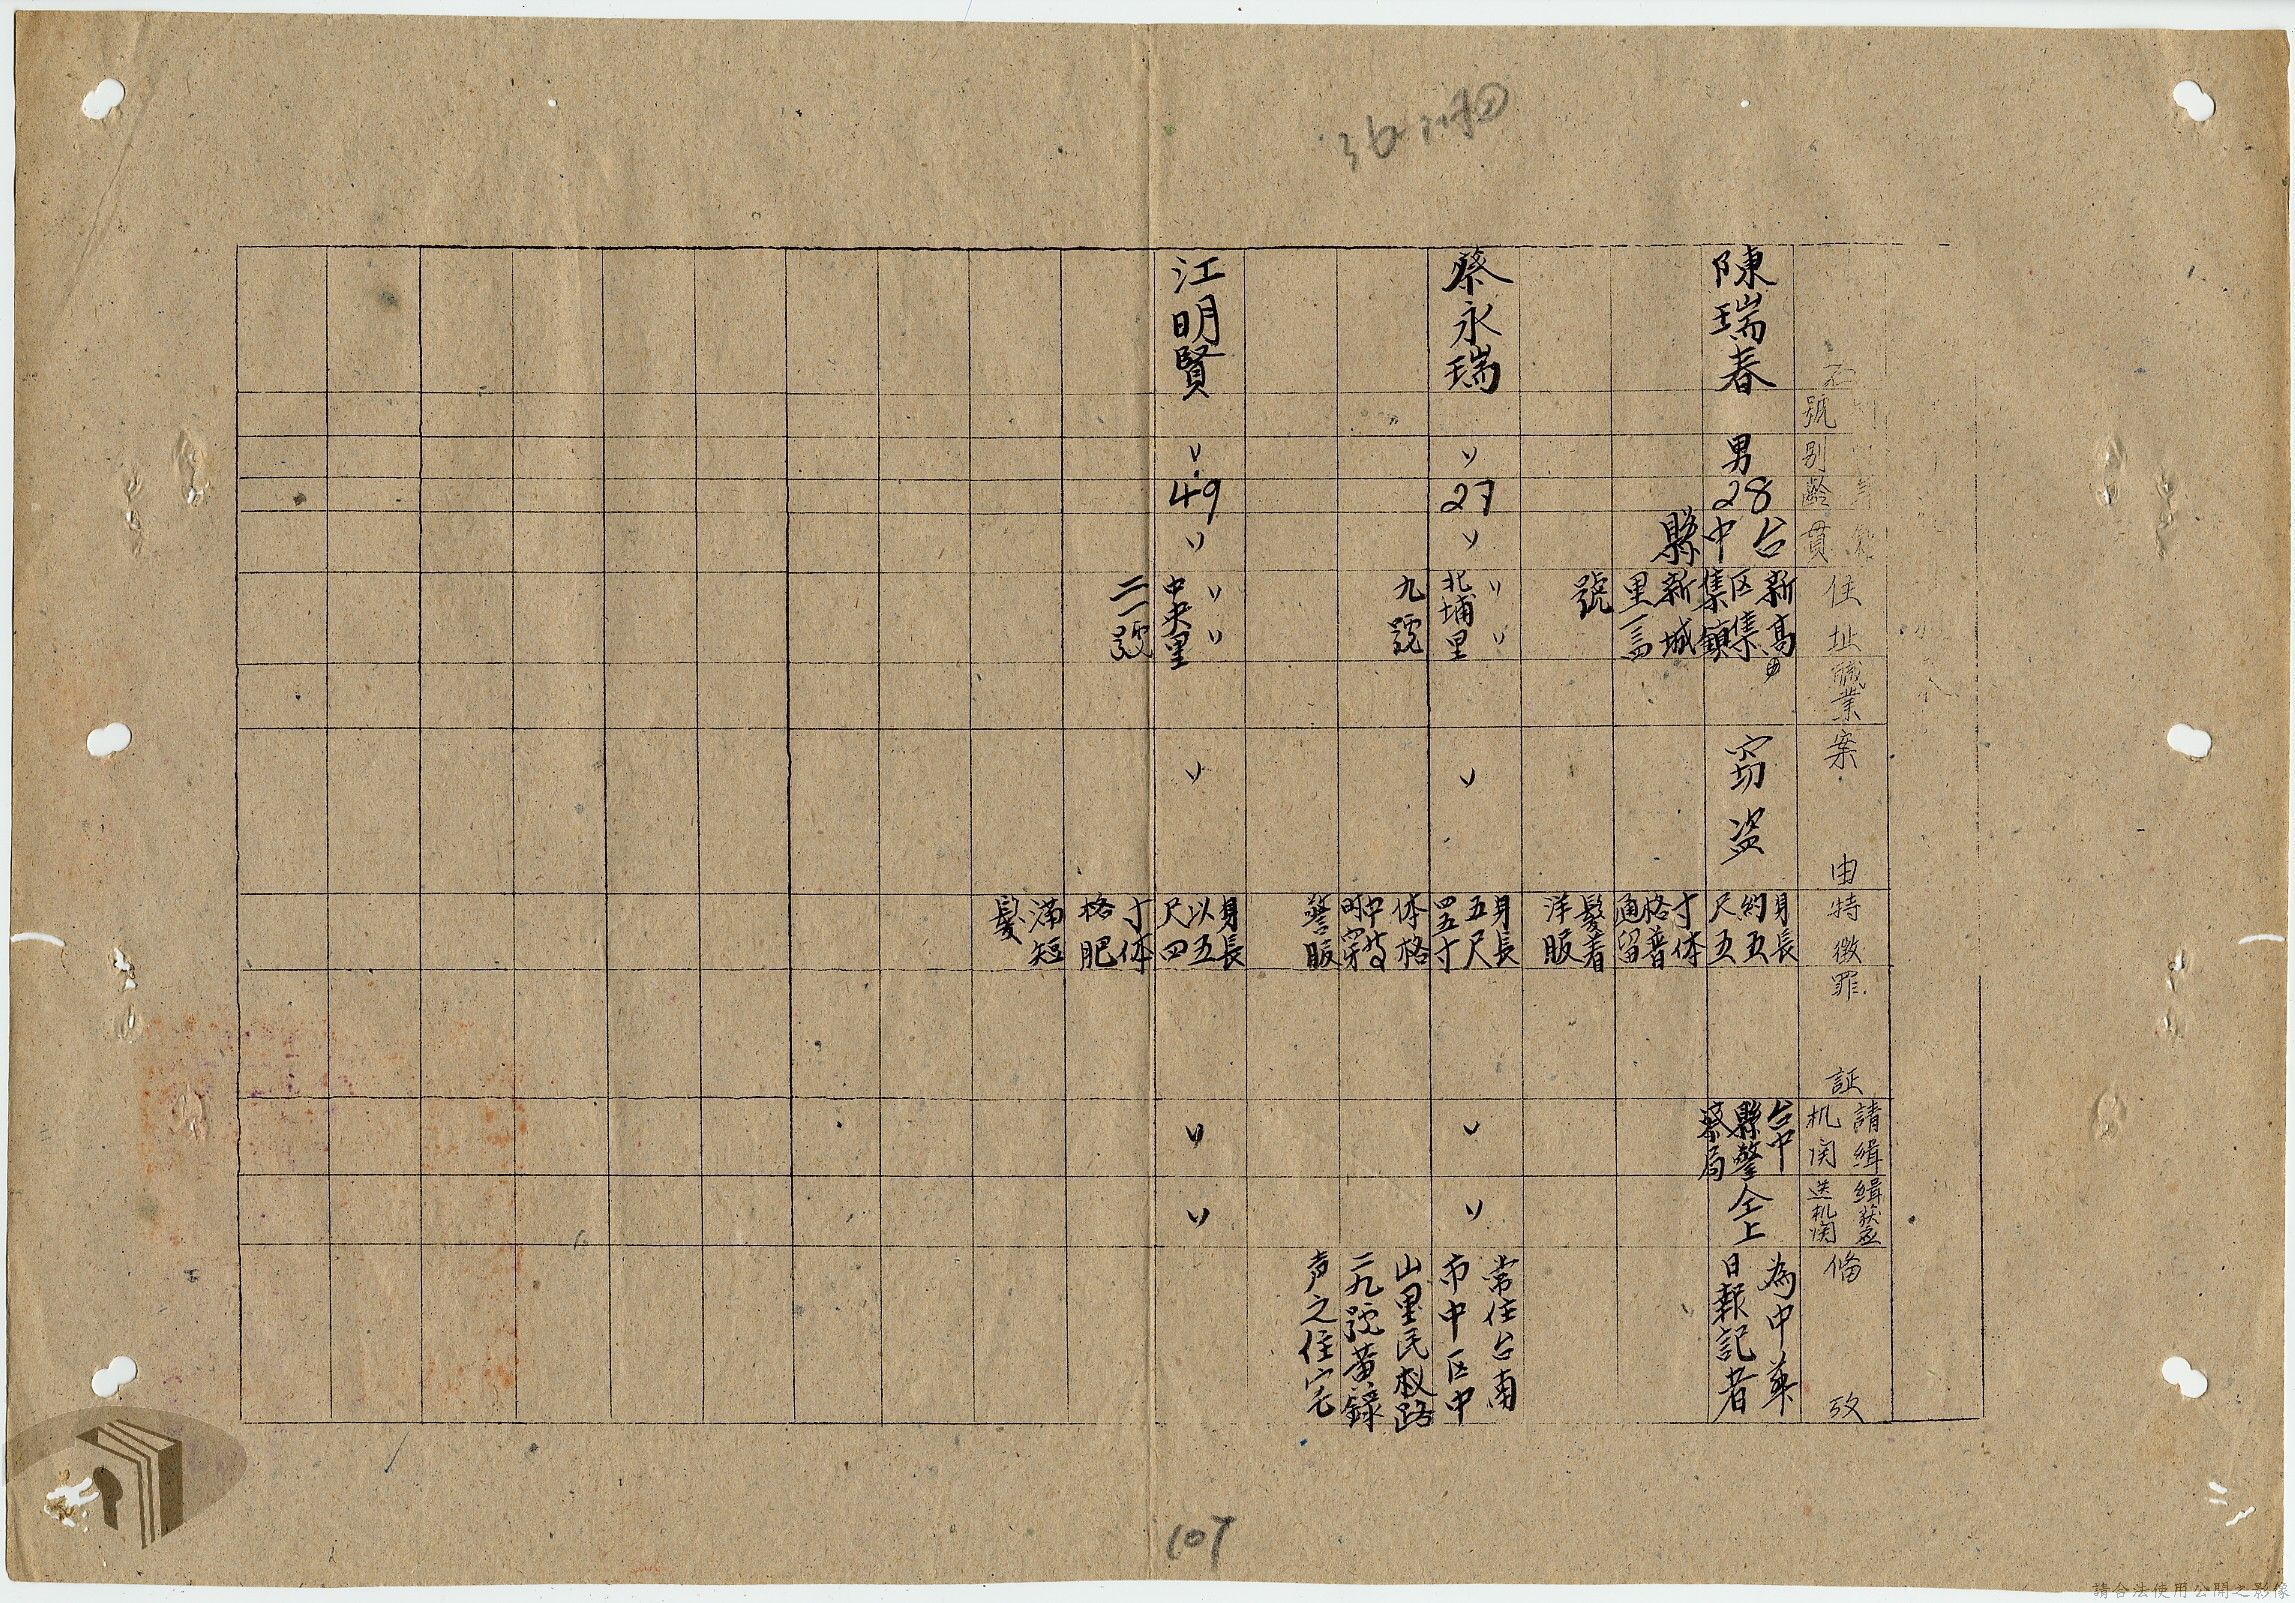 號
別
齡
貫
住址
職業
案由
特徵
罪証
請緝
机関
緝獲
送机関
俻攷
陳瑞春
男
28
台
中
縣
新高
区集
集鎮
新城
里
號
窃盗
身長
約五
尺五
寸体
格普
通留
髮着
洋服
台中
縣警
察局
仝上
為中華
日報記者
蔡永瑞
〃
27
〃
〃〃
北埔里
九號
〃
身長
五尺
四五寸
体格
中等
時穿
警服
〃
〃
常住台南
市中区中
山里民权路
二九號黃鐌
声之住宅
江明賢
〃
49
〃
〃〃
中央里
二一號
〃
身長
以五
尺四
寸体
格肥
滿短
髮
〃
〃
107
請合法使用公開之影像